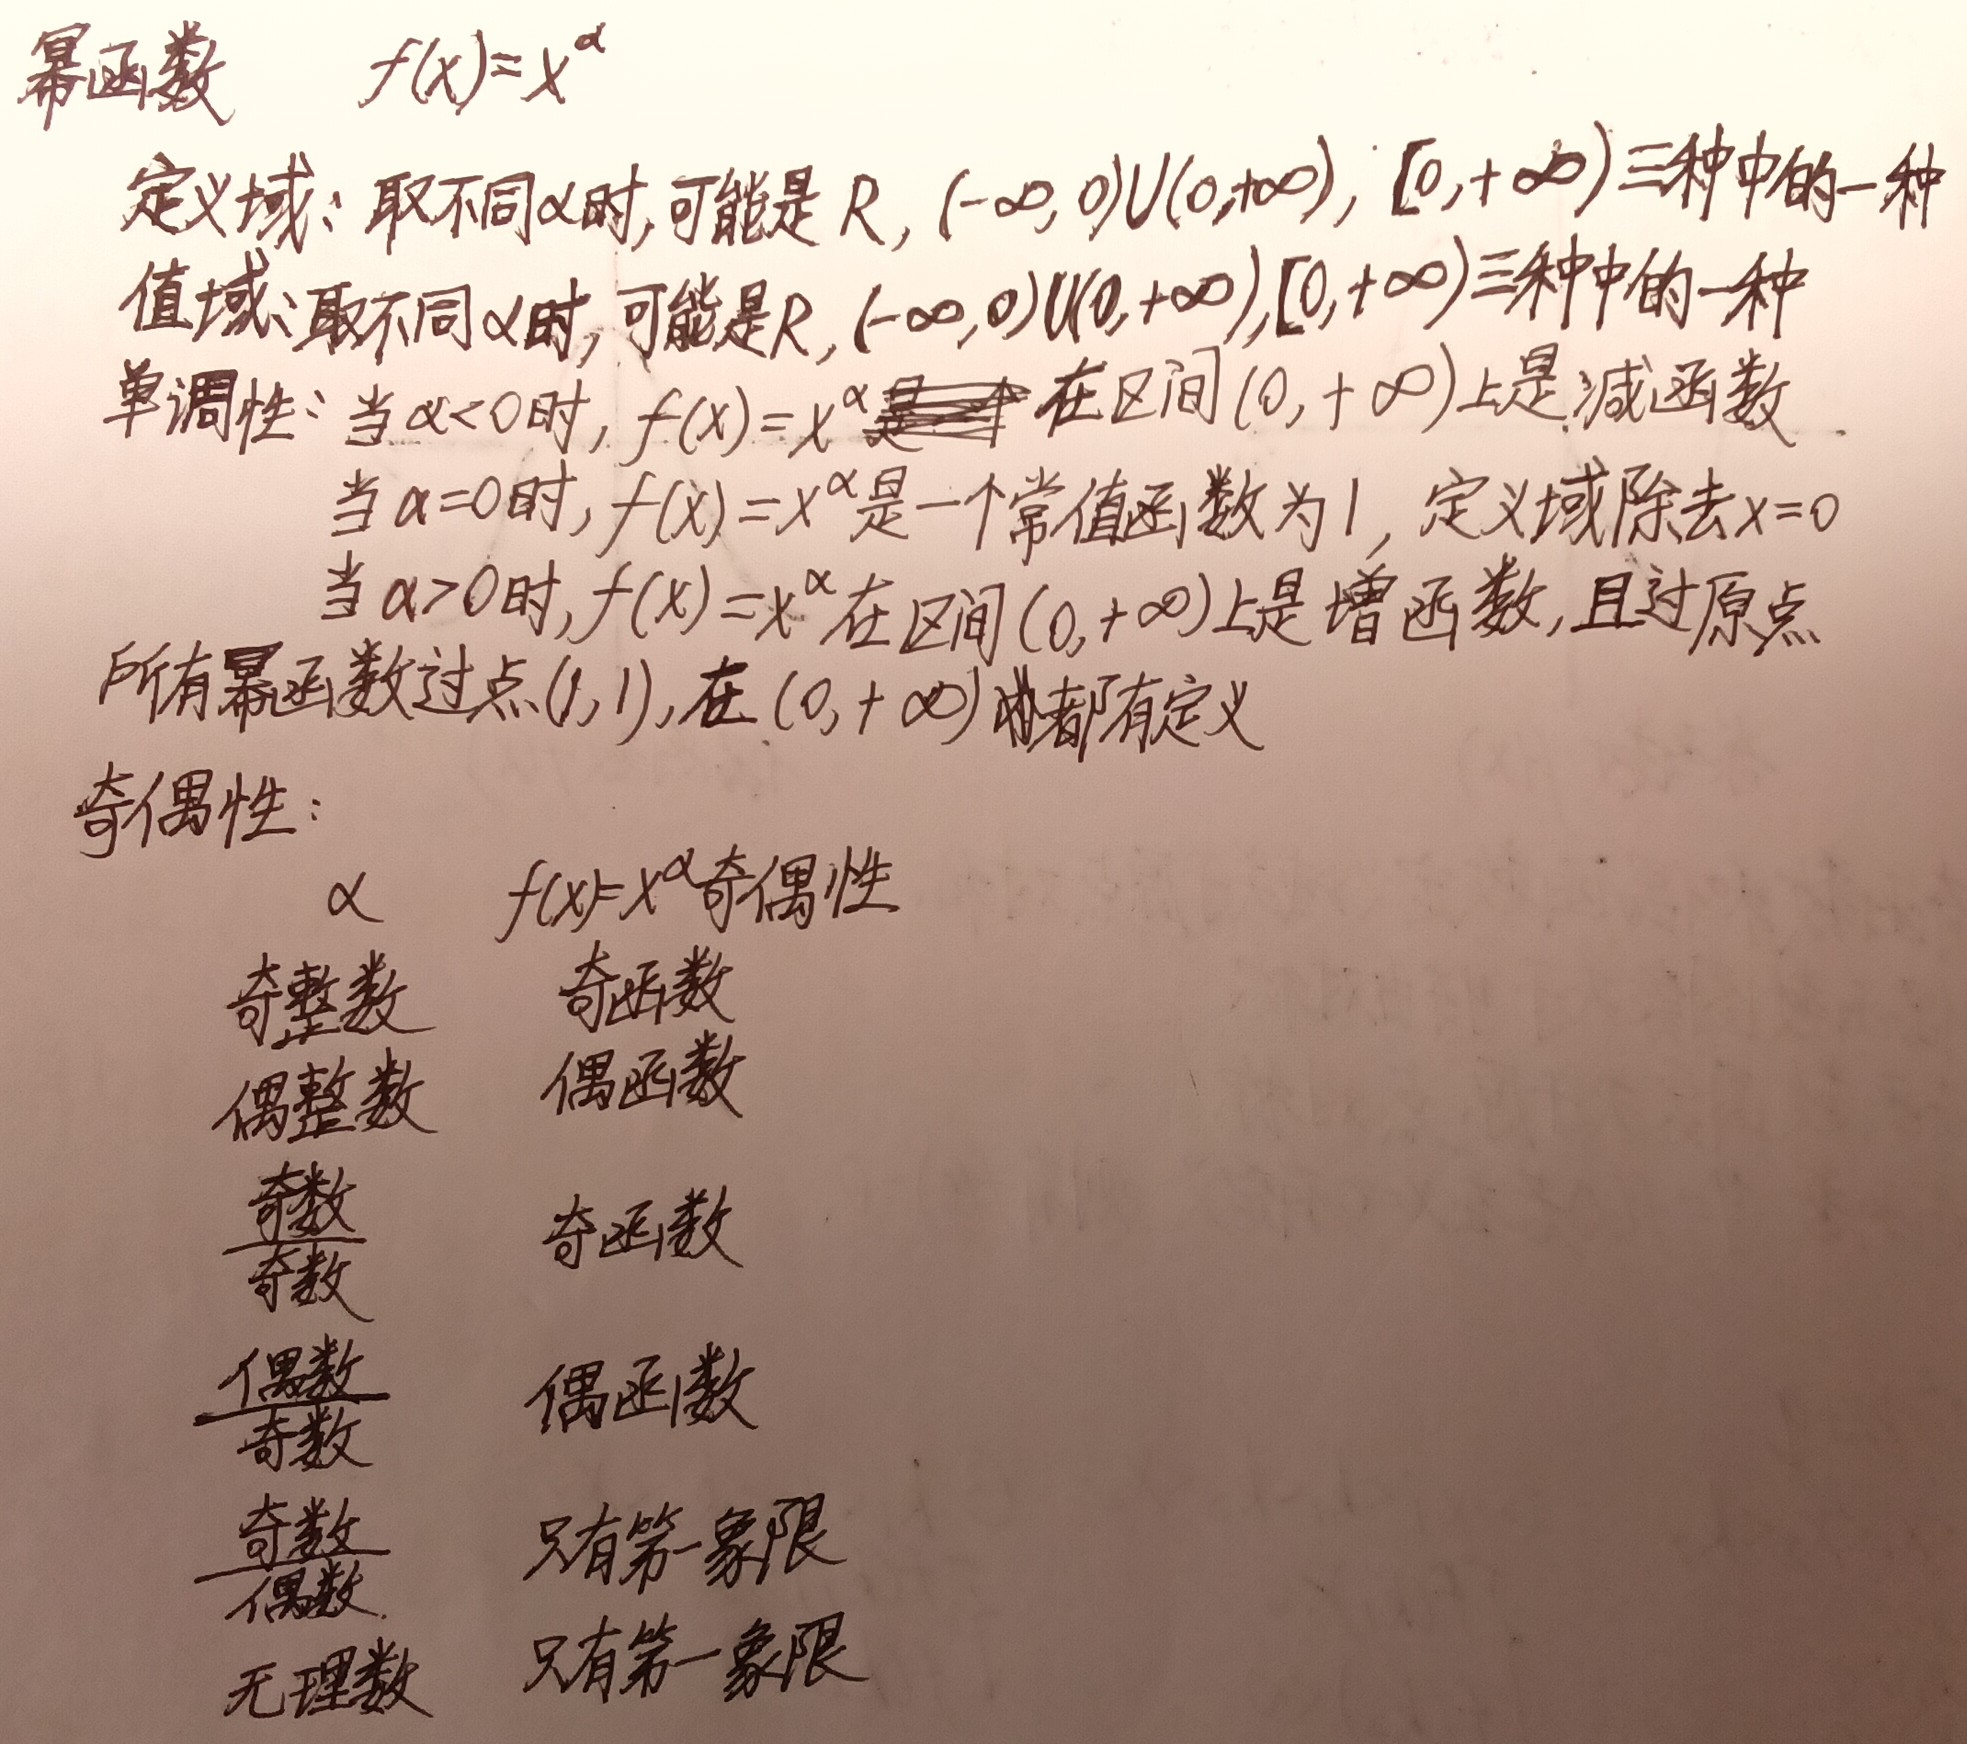 幂函数 f(x)=x^α
定义域：取不同α时,可能是R,(-∞,0)∪(0,+∞),[0,+∞)三种中的一种
值域：取不同α时,可能是R,(-∞,0)∪(0,+∞),[0,+∞)三种中的一种
单调性：当α<0时,f(x)=x^α在区间(0,+∞)上是减函数
当α=0时,f(x)=x^α是一个常值函数为1,定义域除去x=0
当α>0时,f(x)=x^α在区间(0,+∞)上是增函数,且过原点
所有幂函数过点(1,1),在(0,+∞)都有定义
奇偶性：
α f(x)=x^α奇偶性
奇整数 奇函数
偶整数 偶函数
奇数/奇数 奇函数
偶数/奇数 偶函数
奇数/偶数 只有第一象限
无理数 只有第一象限